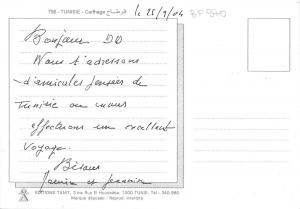 798 - TUNISIE - Carthage قرطاج
le 25/9/04
Bonjour DD
Nous t'adressons
d'amicales pensées de
Tunisie ou nous
effectuons un excellent
voyage.
Bisous
et
EDITIONS TANIT, 3 bis Rue B. Houssière, 1000 TUNIS, Tél : 340.960
Marque déposée / Reprod. interdite